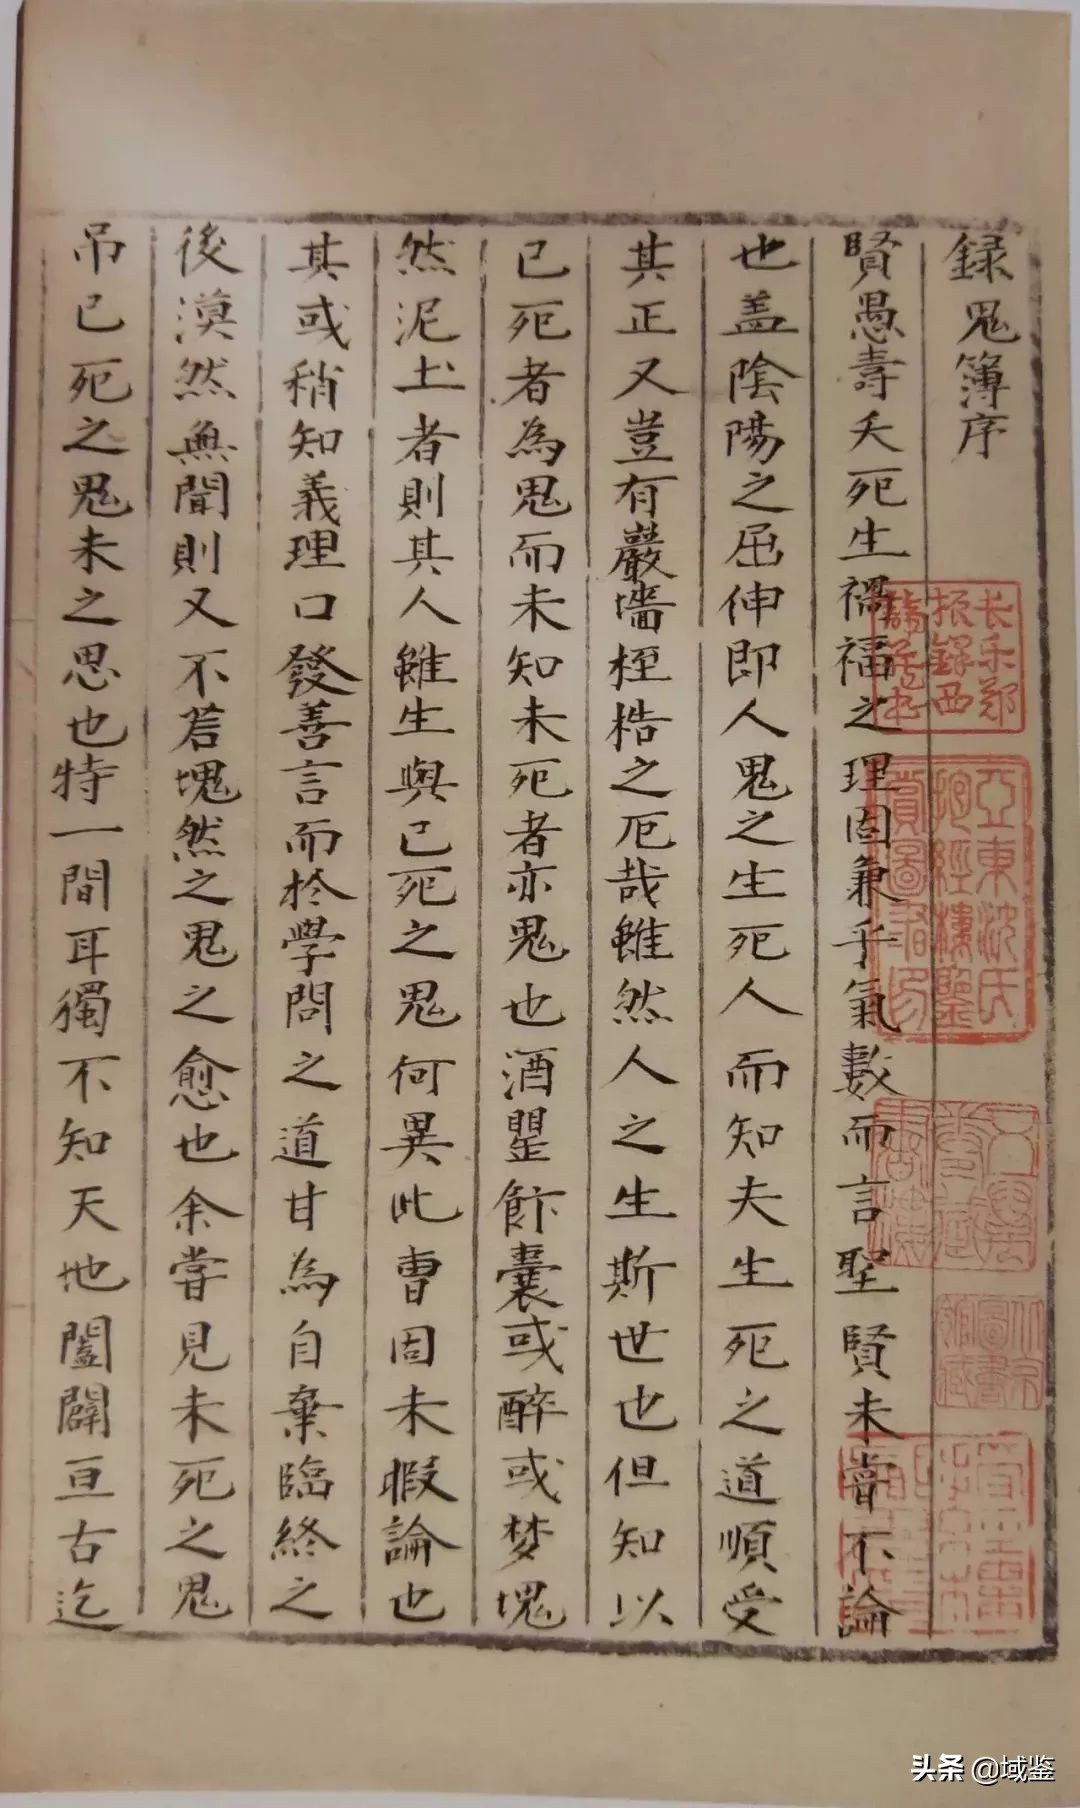 録鬼簿序
賢愚壽夭死生禍福之理固兼乎氣數而言聖賢未嘗不論
也盖陰陽之屈伸即人鬼之生死人而知夫生死之道順受
其正又豈有嚴墻桎梏之厄哉雖然人之生斯世也但知以
已死者為鬼而未知未死者亦鬼也酒罌飰囊或醉或梦塊
然泥土者則其人雖生與已死之鬼何異此曹固未暇論也
其或稍知義理口發善言而於學問之道甘為自棄臨終之
後漠然無聞則又不若塊然之鬼之愈也余嘗見未死之鬼
吊已死之鬼未之思也特一間耳獨不知天地闔闢亘古迄
长乐郑
振鐸西
諦藏书
亞東沈氏
抱經樓鑒
賞圖書印
头条 @域鉴